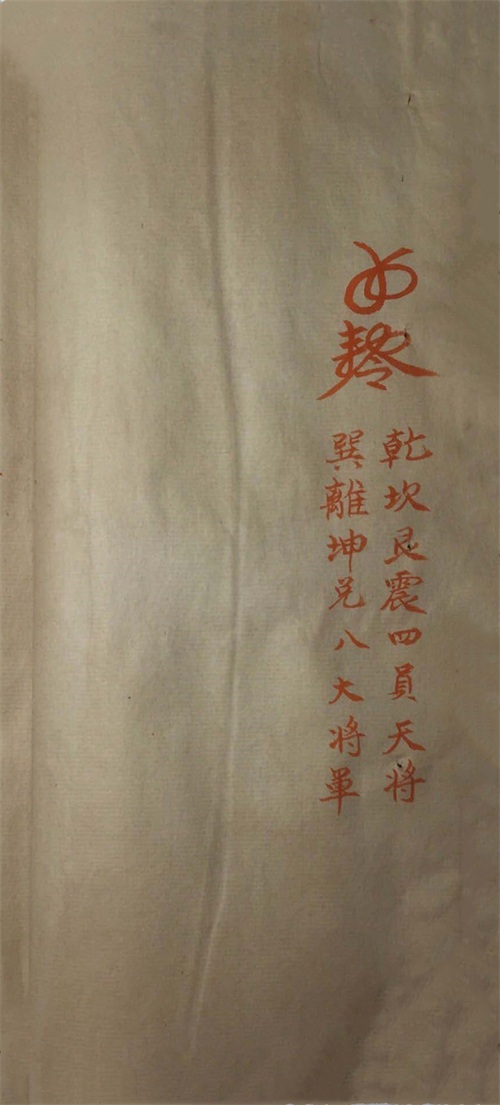 敕令
乾坎艮震四員天将
巽離坤兑八大将軍